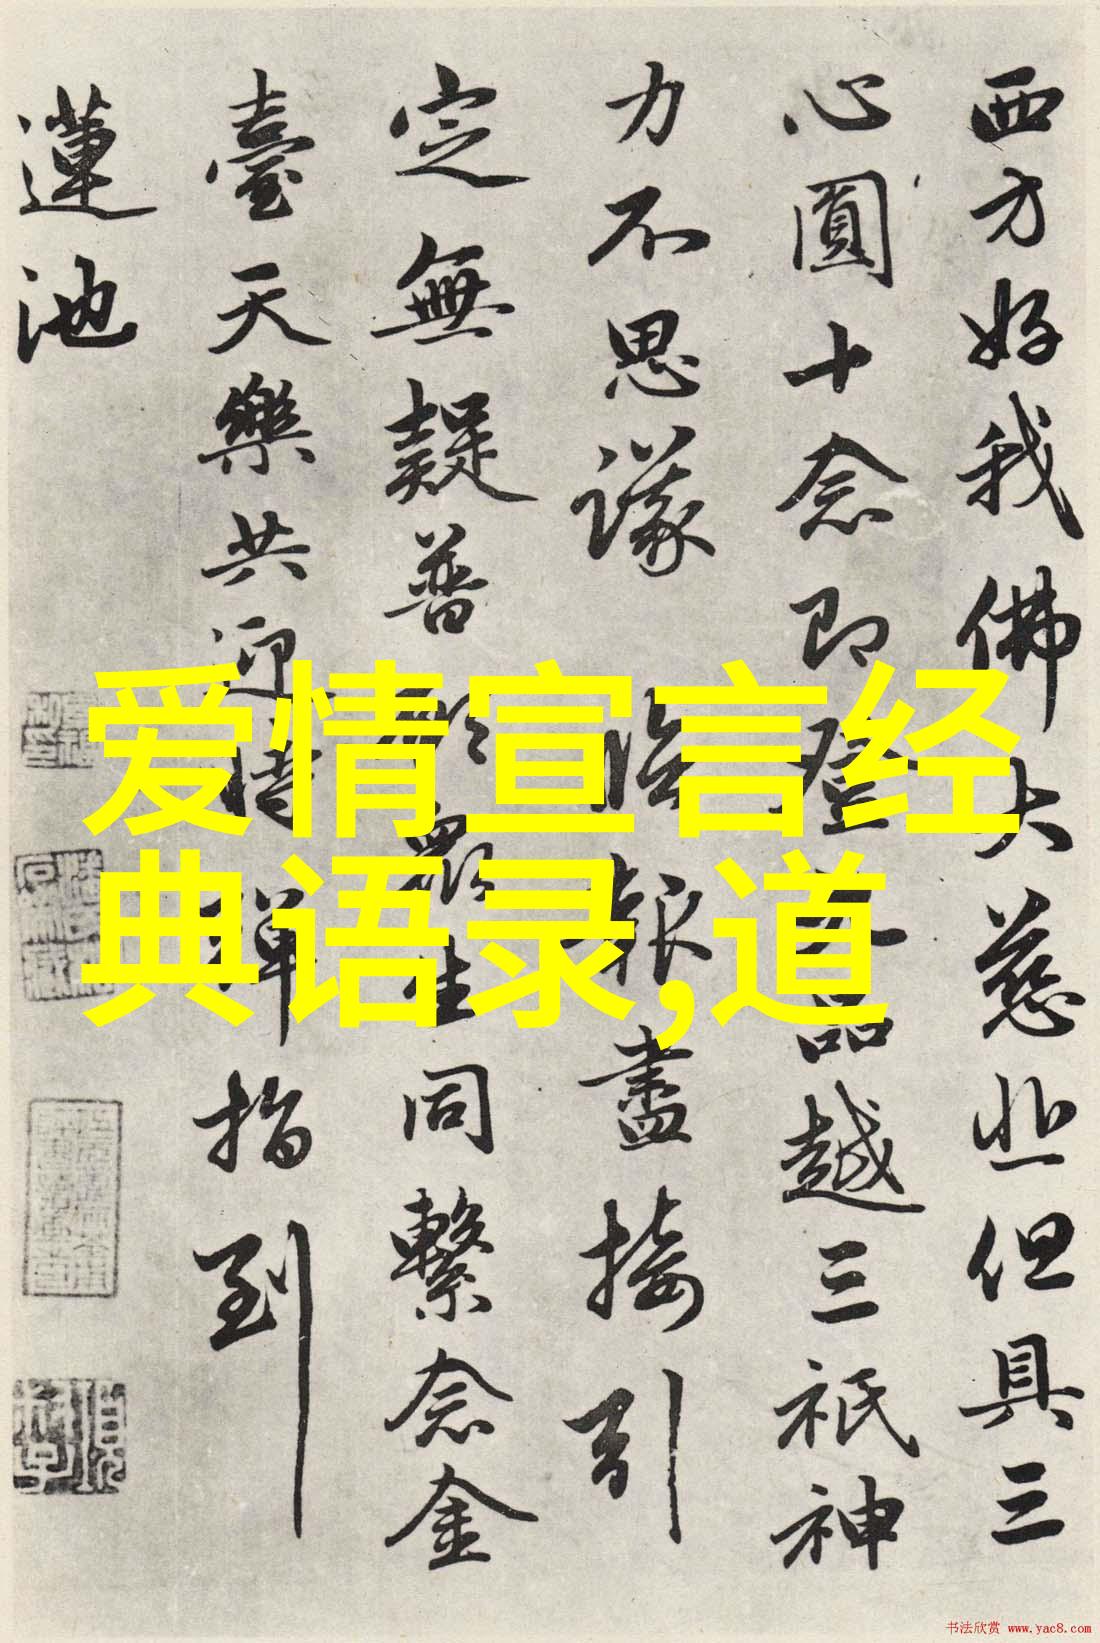 西方好我佛大慈悲但具三
心圓十念即登品越三祇神
力不思議臨報盡接引
定無疑普願眾生同繫念金
臺天樂共迎時彈指到
蓮池
爱情宣言经
典语录,道
书法欣赏 www.yac8.com